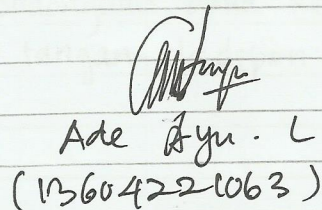 Ade Ayu . L
(13604221063)